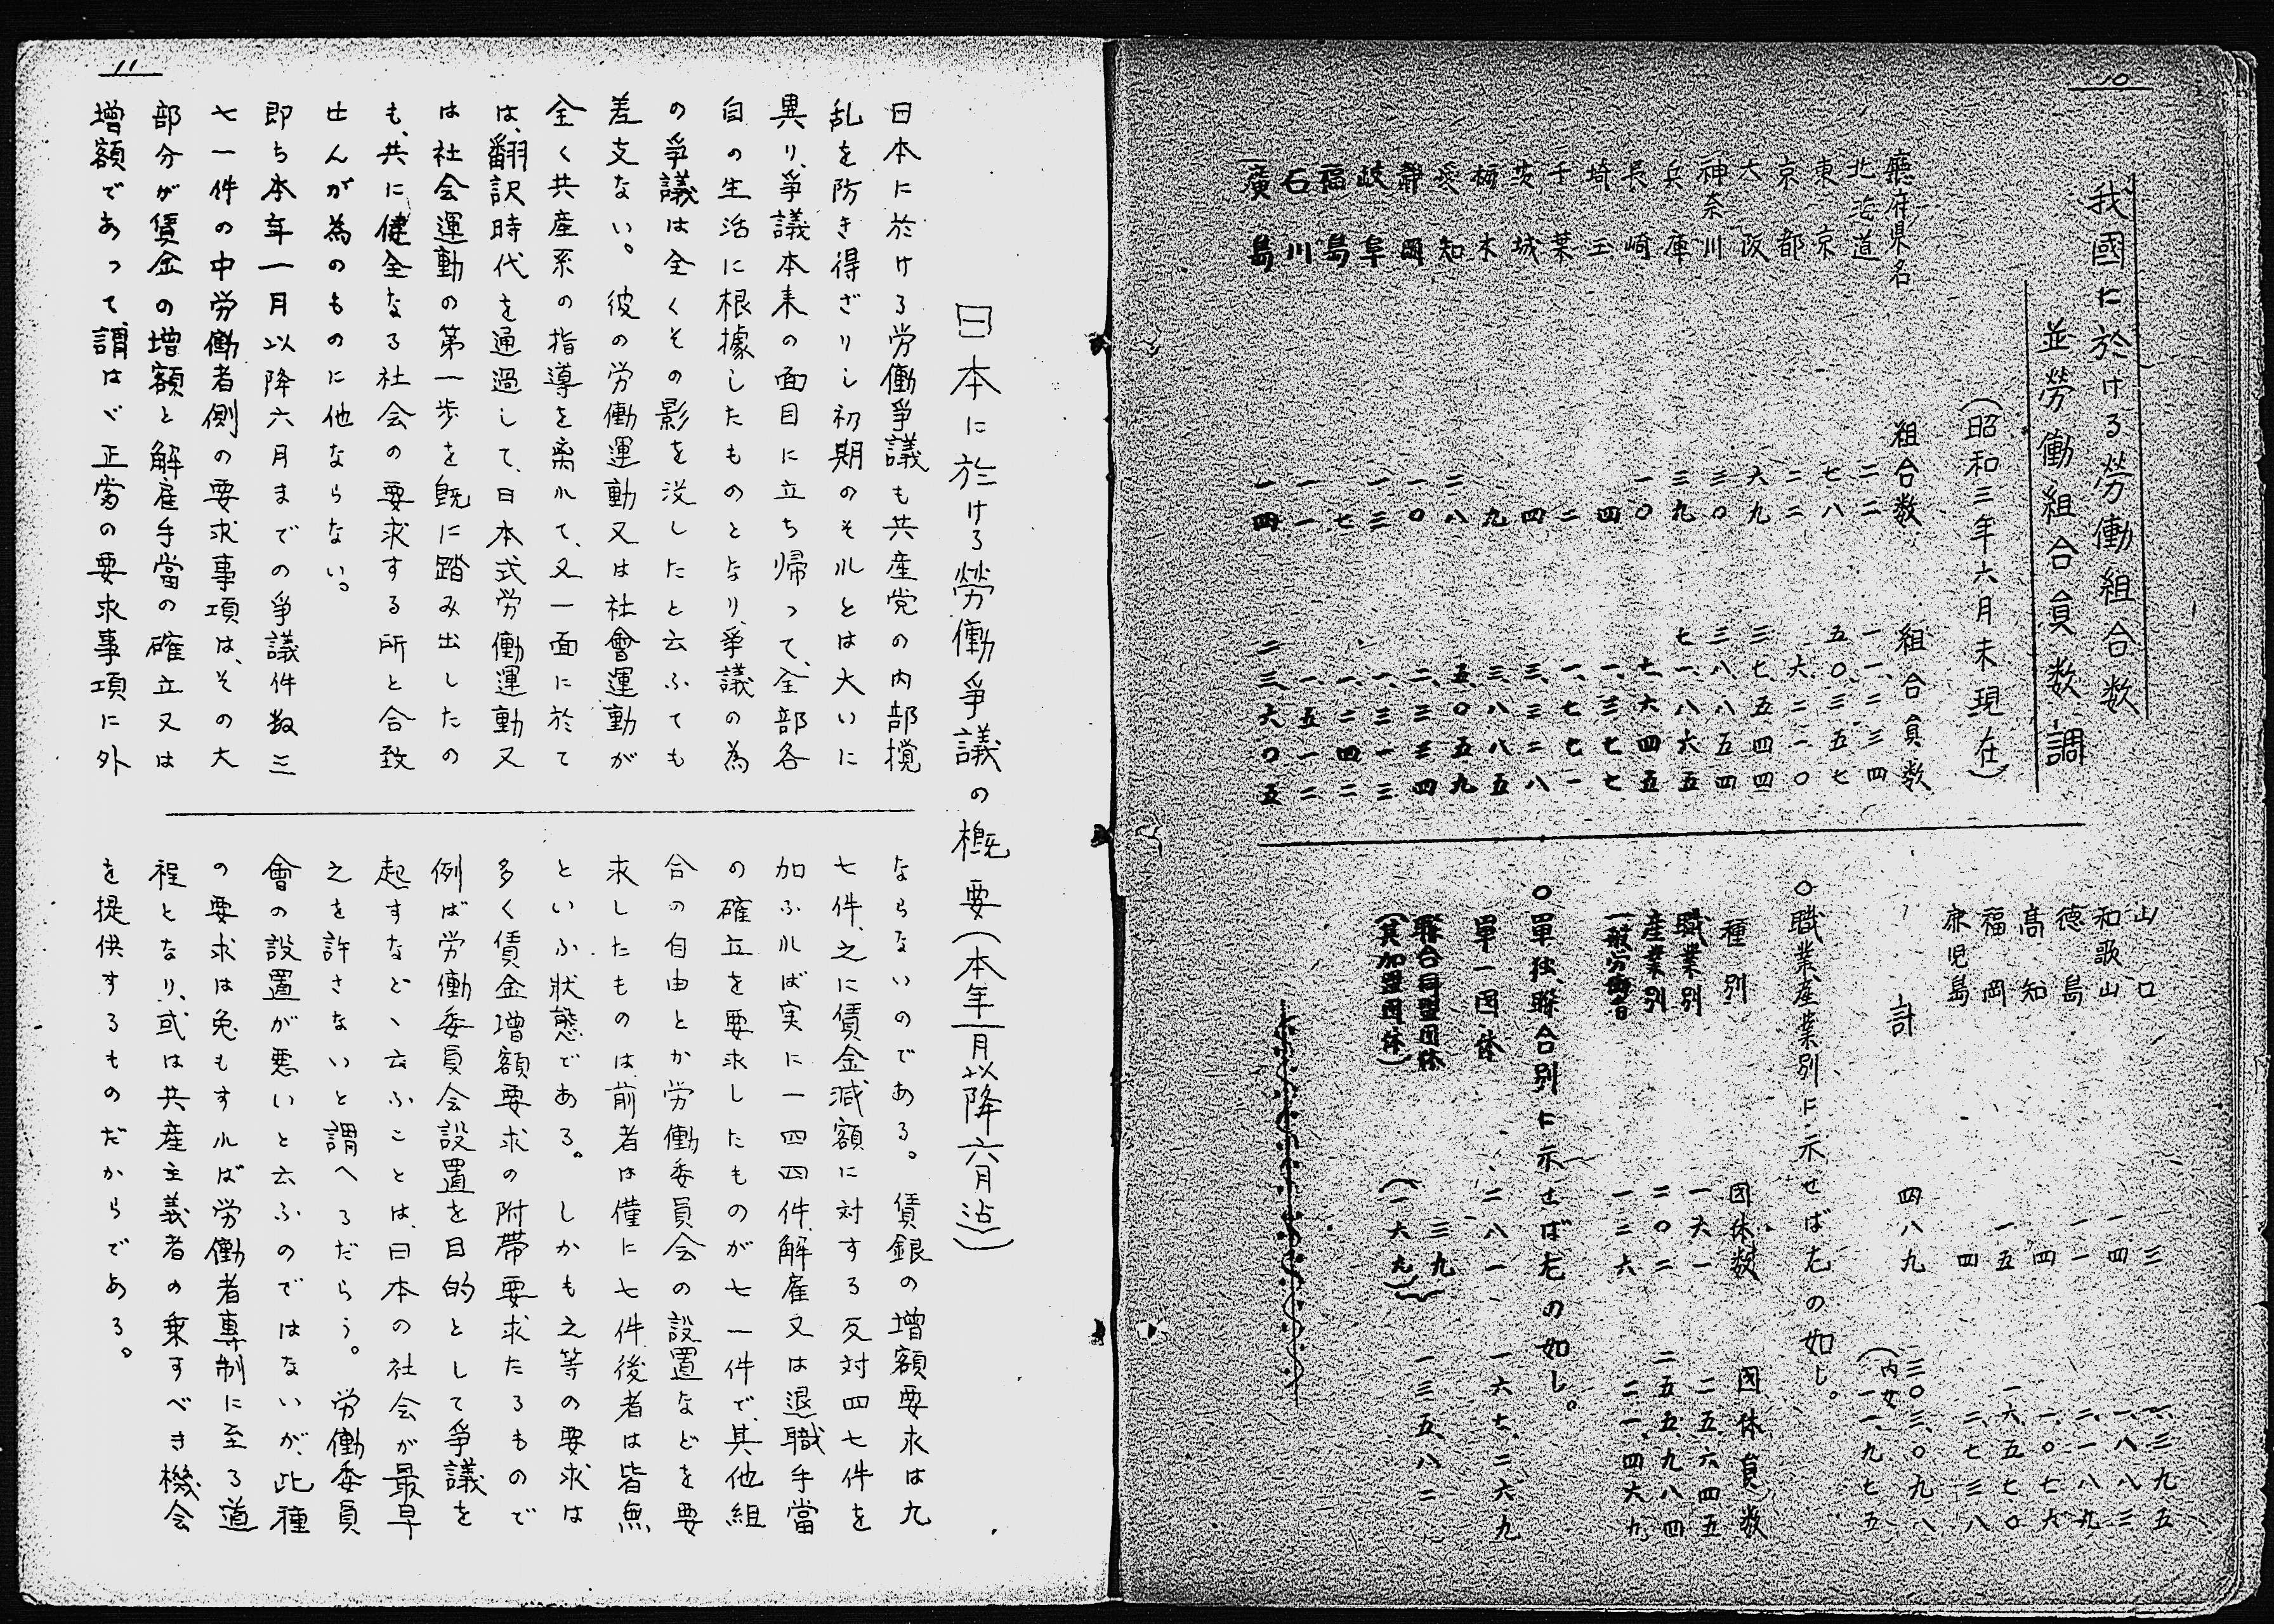 10
我國に於ける勞働組合数
並勞働組合員数調
（昭和三年六月末現在）
廳府県名　組合数　組合員数
北海道　二二　一一、二三四
東京　七八　五〇、三五七
京都　二二　六、二一〇
大阪　六九　三七、五四四
神奈川　三〇　三八、八五四
兵庫　三九　七一、八六五
長崎　一〇　七、六四五
埼玉　四　一、三七七
千葉　二　一、七七一
茨城　四　三、三二八
栃木　九　三、八八五
愛知　二八　五、〇五九
静岡　一〇　二、三三四
岐阜　一三　一、三一三
福島　七　一、二四二
石川　一一　一、五一二
廣島　一四　二三、六〇五
山口　三　一、三九五
和歌山　一四　一、八八三
徳島　一一　二、一八九
高知　四　一、〇七六
福岡　一五　一六、五七〇
鹿児島　四　二、七三八
計　四八九　三〇三、〇九八
（内女　一一、九七五
〇職業産業別に示せば左の如し。
種別　団体数　団体員数
職業別　一六一　二五、六四五
産業別　二〇二　二五五、九八四
一般労働者　一二六　二一、四六九
〇單独、聯合別に示せば左の如し。
單一団体　二八一　一六七、二六九
聯合同盟団体　三九　一三五、八二
（其加盟団体）　（一六九）
11
日本に於ける勞働爭議の概要（本年一月以降六月迠）
日本に於ける労働爭議も共産党の内部撹
乱を防き得ざりし初期のそれとは大いに
異り、爭議本来の面目に立ち帰って、全部各
自の生活に根據したものとなり、爭議の為
の爭議は全くその影を没したと云ふても
差支ない。彼の労働運動又は社會運動が
全く共産系の指導を离れて、又一面に於て
は、翻訳時代を通過して、日本式労働運動又
は社会運動の第一歩を既に踏み出したの
も、共に健全なる社会の要求する所と合致
せんが為のものに他ならない。
即ち本年一月以降六月までの爭議件数三
七一件の中労働者側の要求事項は、その大
部分が賃金の増額と解雇手當の確立又は
増額であって、謂はゞ正當の要求事項に外
ならないのである。賃銀の増額要求は九
七件、之に賃金減額に対する反対四七件を
加ふれば実に一四四件、解雇又は退職手當
の確立を要求したものが七一件で、其他組
合の自由とか労働委員会の設置などを要
求したものは前者は僅に七件後者は皆無
といふ状態である。しかも之等の要求は
多く賃金増額要求の附帯要求たるもので
例ば労働委員会設置を目的として爭議を
起すなどゝ云ふことは、日本の社会が最早
之を許さないと謂へるだらう。労働委員
會の設置が悪いと云ふのではないが、此種
の要求は兎もすれば労働者專制に至る道
程となり、或は共産主義者の乗すべき機会
を提供するものだからである。